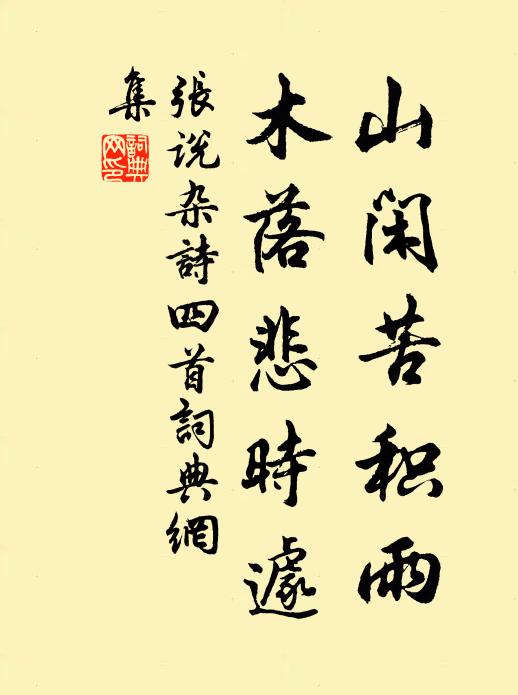 山闲苦积雨
木落悲時遽
張说杂詩四首詞典網
集
詞典網印